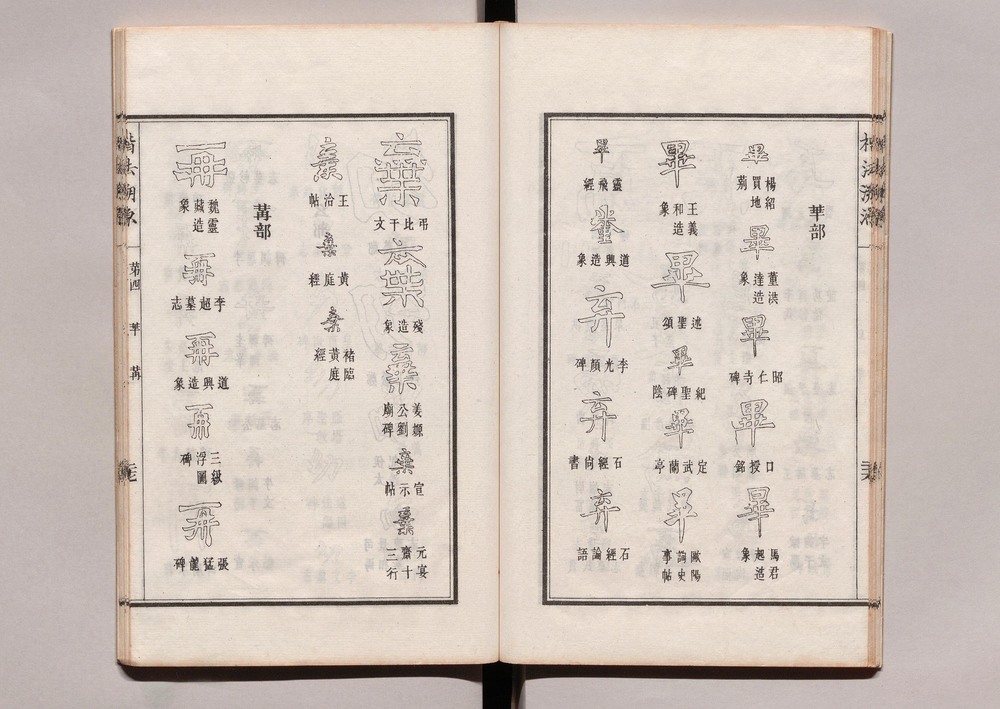 𠦒部
畢 楊紹買地莂 畢 董洪達造象 畢 昭仁寺碑 畢 口授銘 畢 馬君起造象
畢 王義和造象 畢 述聖頌 畢 紀聖碑陰 畢 定武蘭亭 畢 歐陽詢史事帖
畢 靈飛經 糞 道興造象 弃 李光顏碑 弃 石經尙書 弃 石經論語
棄 弔比干文 棄 殘造象 棄 姜嫄公劉廟碑 棄 宣示帖 棄 元宴齋十三行
棄 王洽帖 棄 黃庭經 棄 褚臨黃庭經
冓部
再 魏靈藏造象 再 李超墓志 再 道興造象 再 三級浮圖碑 再 張猛龍碑
楷法溯源 第四 𠦒 冓